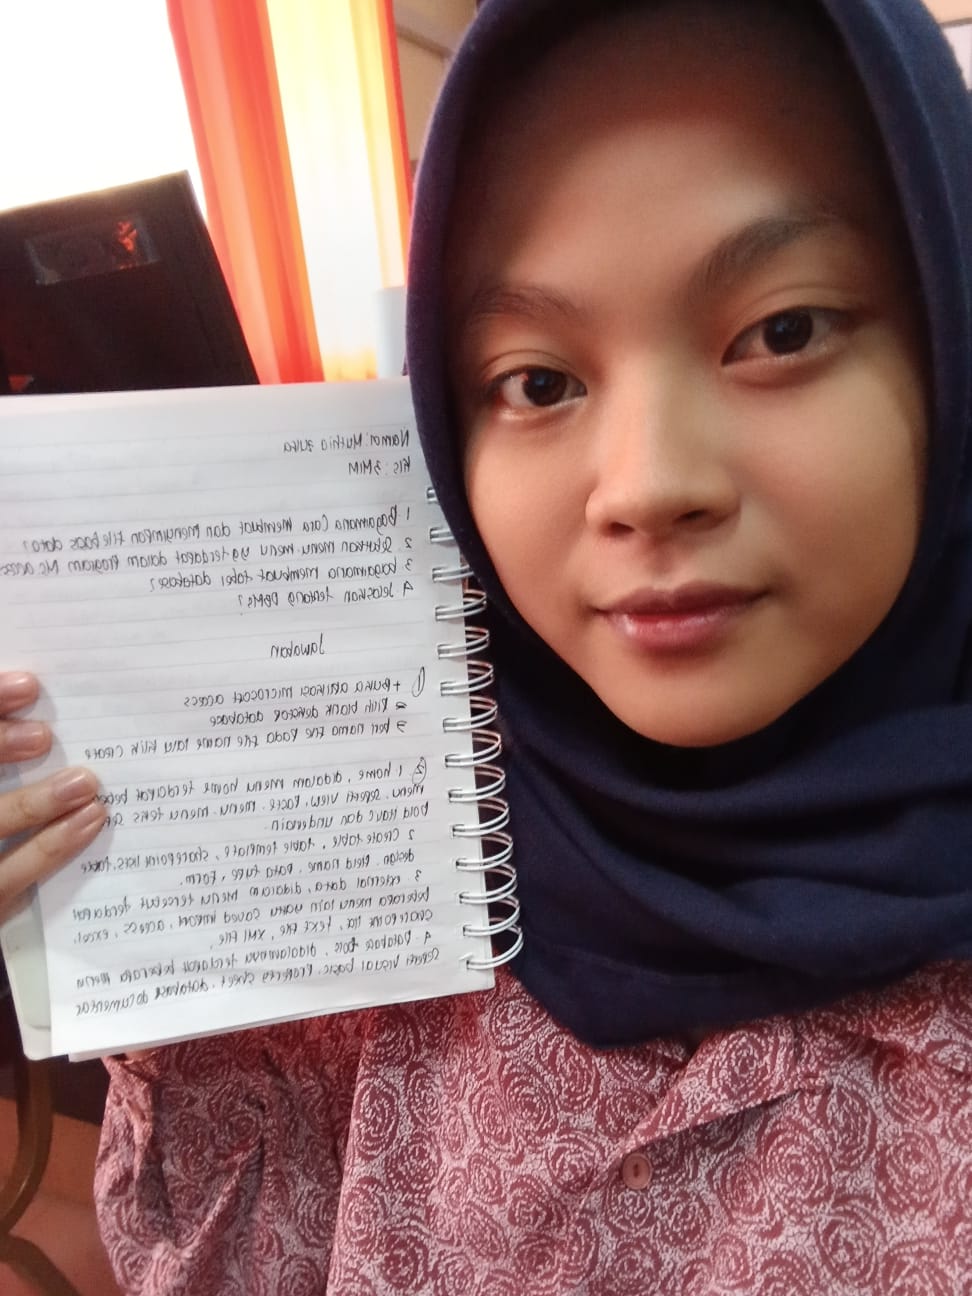 Nama: Muthia zulfa
Kls : 3MIM
1 Bagaimana Cara Membuat dan menyimpan file Bass data?
2. Sbutkan menu menu yg terdapat dalam Program Mc. acces
3 bagaimana membuat tabel database?
4 Jelaskan tentang DBMS?
Jawaban
① + Buka aplikasi microsoft access
2 klik blank dekstop database
3 beri nama file pada file name lalu klik create
② 1 home, didalam menu home terdapat
menu. seperti view, Paste. menu menu teks
bold itawc dan underlain.
2 Create table, table template, sharepoint lises, table
design. field name, Data type, Form.
3. external data, didalam menu tersebut terdapat
beberapa menu lain yaitu saved import, access, excel,
sharepoint list, text file, XMl file,
4. Database tools, didalamnya terdapat beberapa menu
seperti visual basic. Property sheet, database documenter